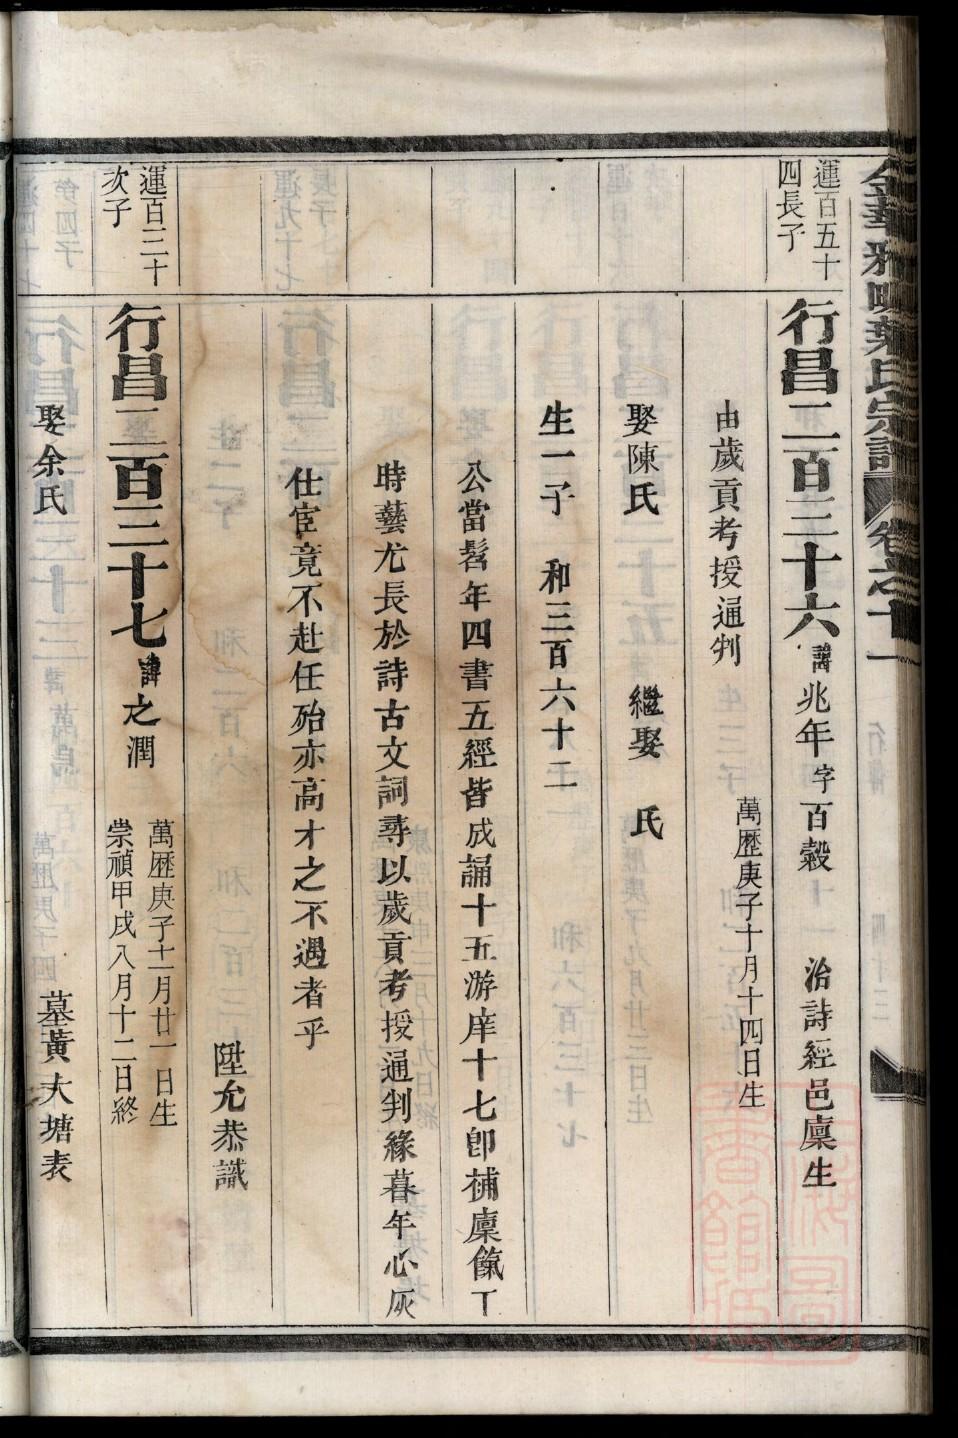 運百五十
四長子
行昌二百三十六 諱兆年 字百穀 治詩經邑廩生
萬歷庚子十月十四日生
由歲貢考授通判
娶陳氏 繼娶 氏
生一子 和三百六十二
公當髫年四書五經皆成誦十五游庠十七卽補廩餼工
時藝尤長於詩古文詞尋以歲貢考授通判緣暮年心灰
仕宦竟不赴任殆亦高才之不遇者乎
陞允恭識
運百三十
次子
行昌二百三十七 諱之潤
萬歷庚子十一月廿一日生
崇禎甲戌八月十二日終
娶余氏 墓黃大塘表